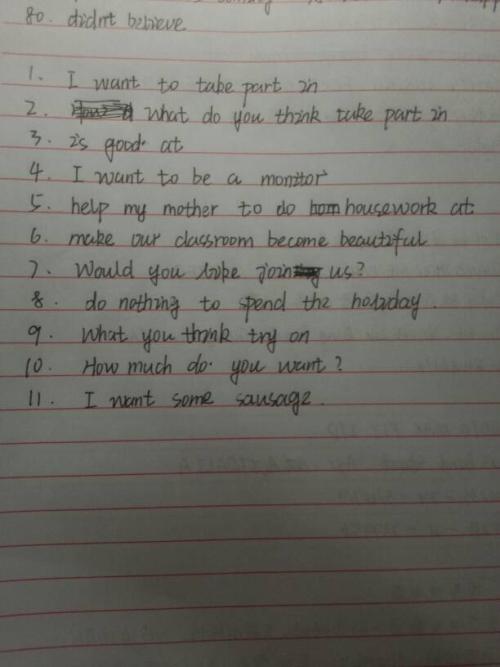 80. didnt believe
1. I want to take part in
2. what do you think take part in
3. is good at
4. I want to be a monitor
5. help my mother to do housework at
6. make our classroom become beautiful
7. Would you like join us?
8. do nothing to spend the holiday.
9. What you think try on
10. How much do you want?
11. I want some sausage.